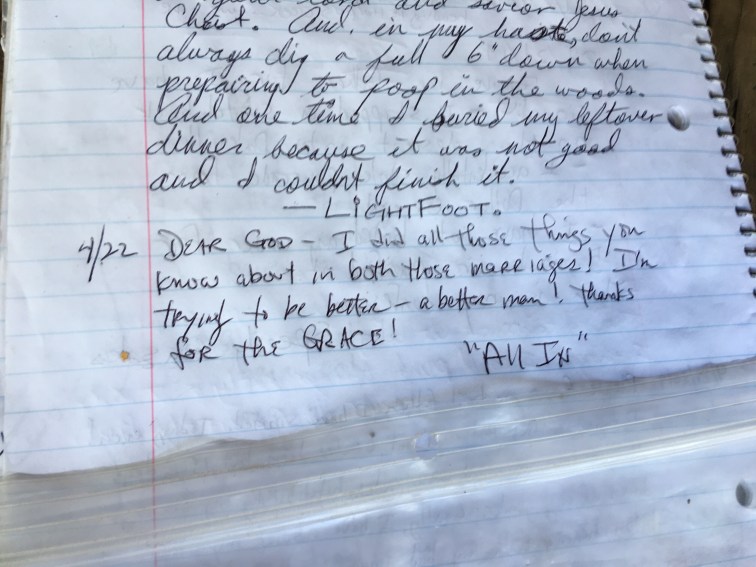 your Lord and savior Jesus
Christ. And, in my haste, don't
always dig a full 6" down when
preparing to poop in the woods.
And one time I buried my leftover
dinner because it was not good
and I couldnt finish it.
— LIGHTFOOT.
4/22 DEAR GOD - I did all those things you
know about in both those marriages! I'm
trying to be better - a better man! Thanks
for the GRACE!
"All IN"